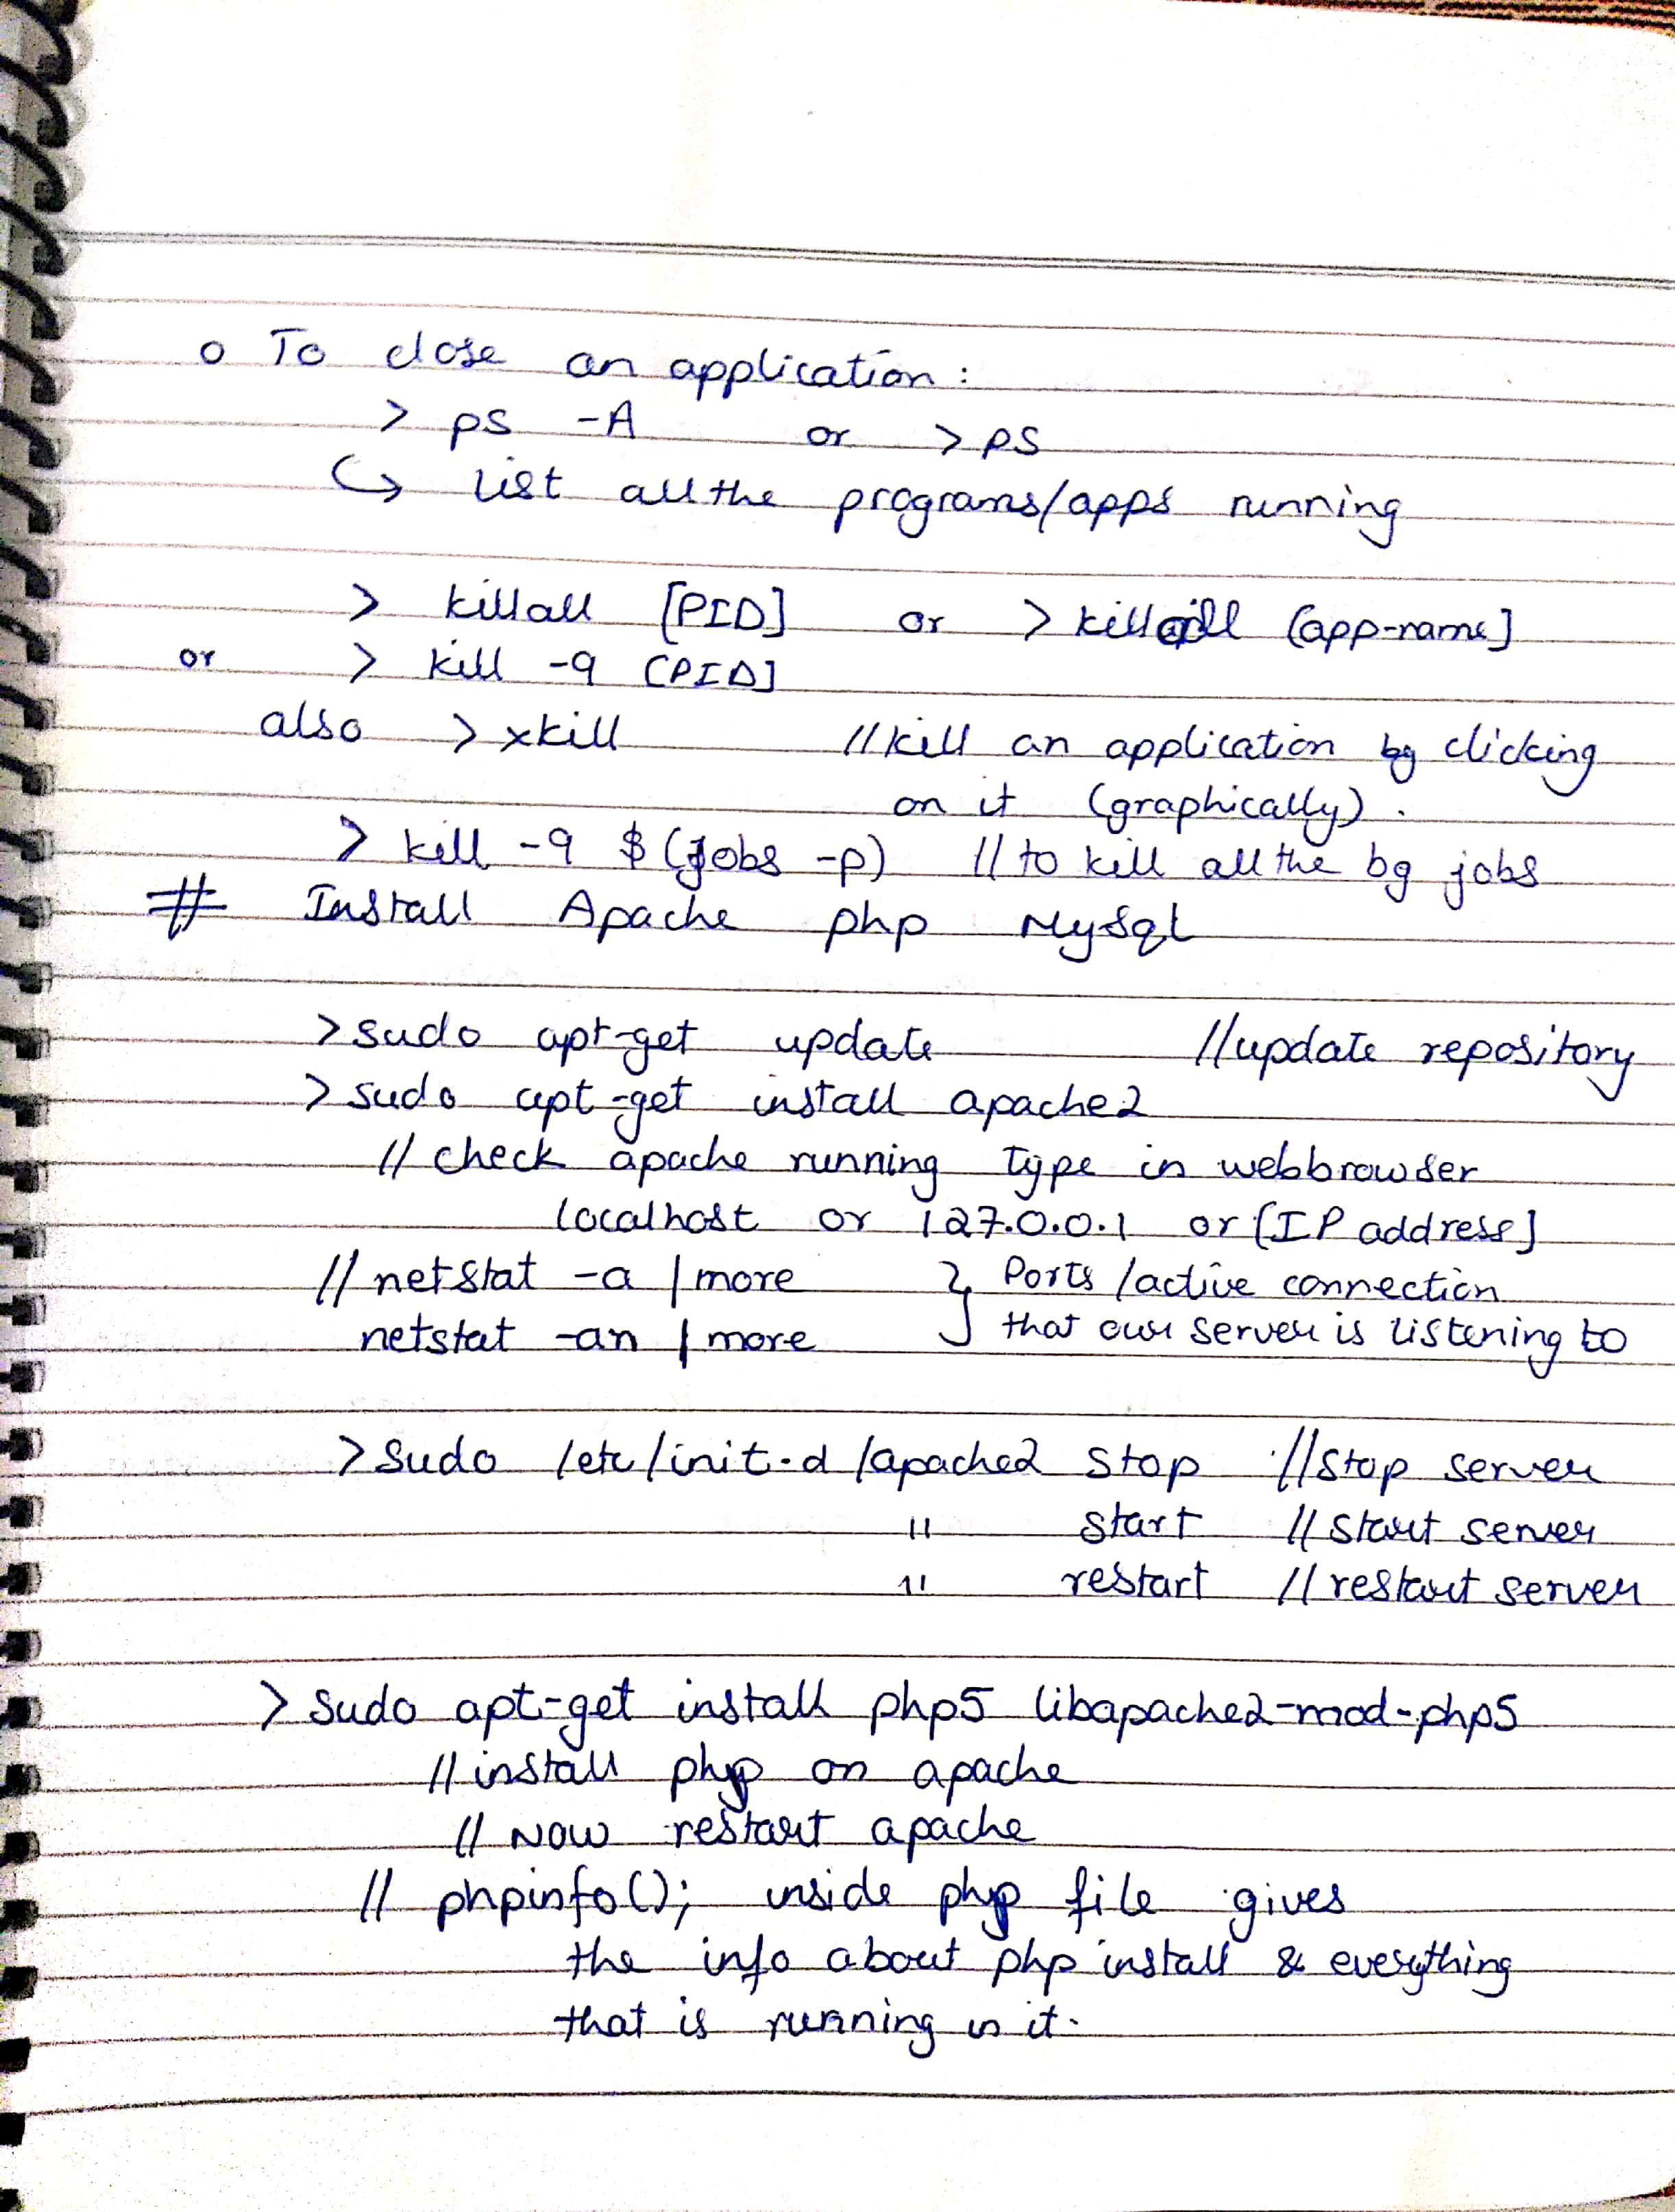 o To close an application :
> ps -A or > ps
↳ List all the programs/apps running
> killall [PID] or > killall [app-name]
or > kill -9 [PID]
also > xkill //kill an application by clicking
on it (graphically).
> kill -9 $(jobs -p) // to kill all the bg jobs
# Install Apache php Mysql
> sudo apt-get update //update repository
> sudo apt-get install apache2
// check apache running type in webbrowser
localhost or 127.0.0.1 or [IP address]
// netstat -a | more } Ports /active connection
netstat -an | more that our server is listening to
> sudo /etc/init.d/apache2 stop //stop server
" start // start server
" restart // restart server
> sudo apt-get install php5 libapache2-mod-php5
// install php on apache
// Now restart apache
// phpinfo(); inside php file gives
the info about php install & everything
that is running in it.